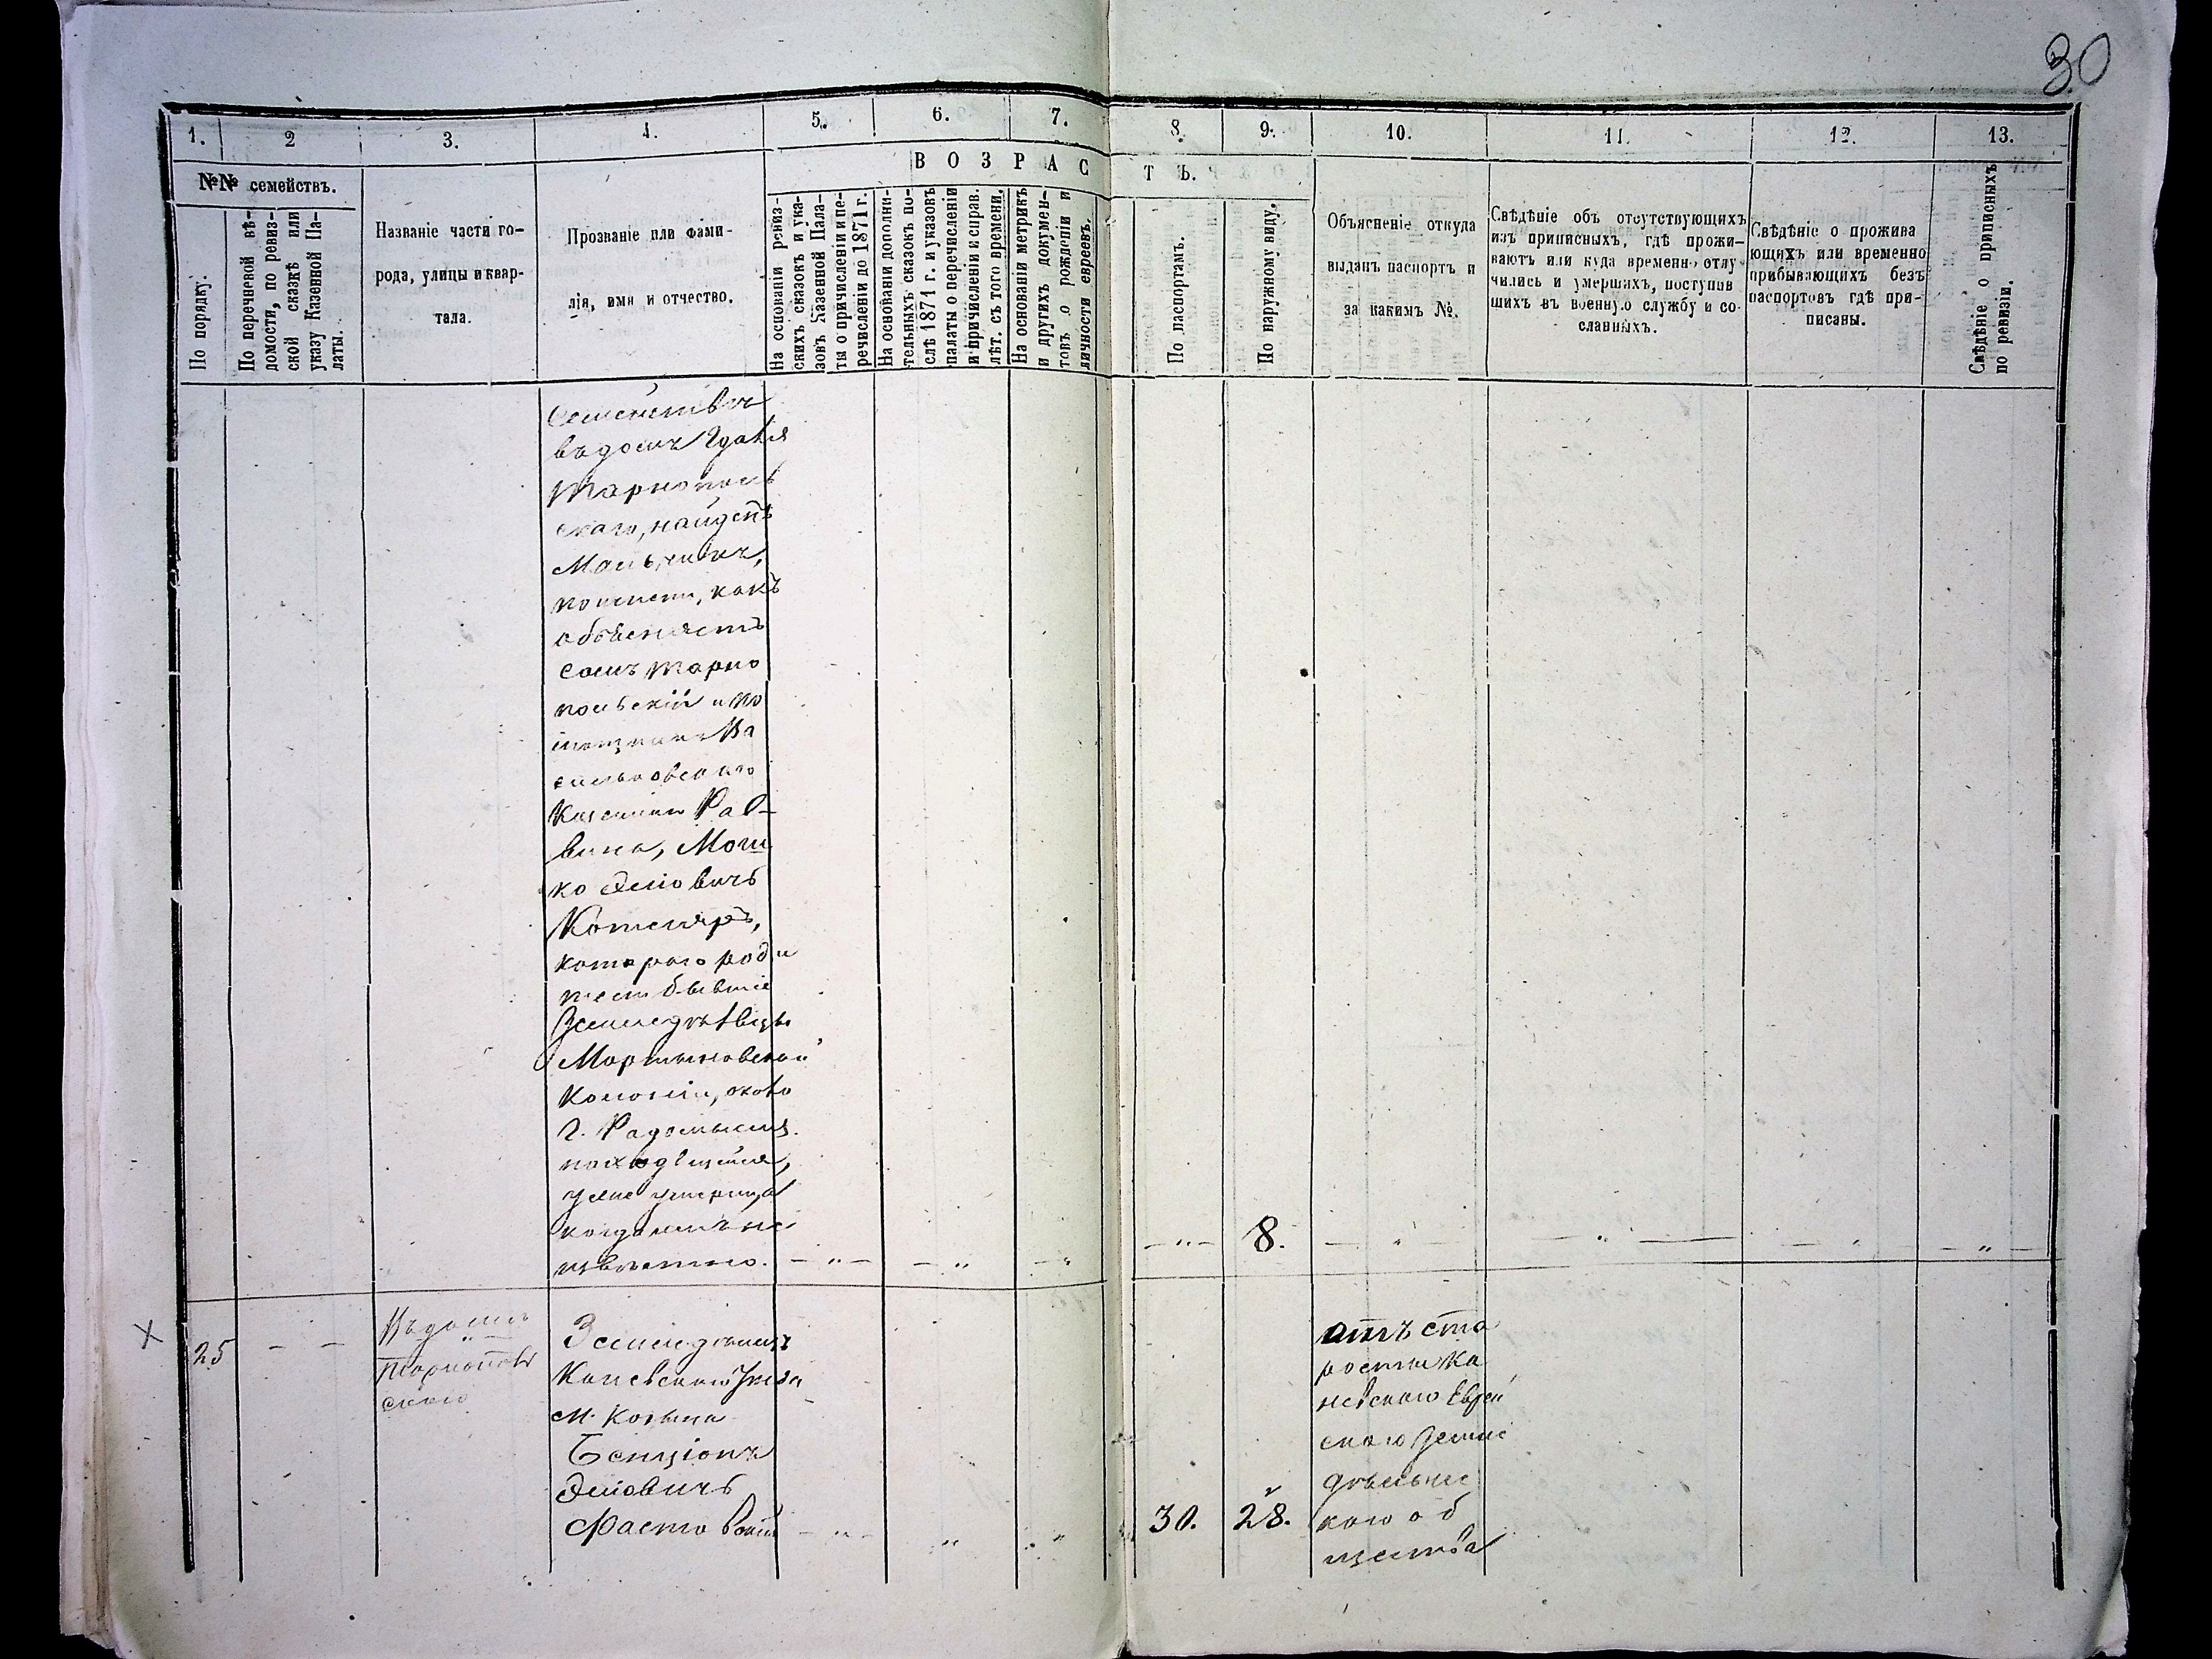 30
1. 2 3. 4. 5. 6. 7. 8. 9. 10. 11. 12. 13.
№№ семействъ.
ВОЗРАСТЪ.
По порядку.
По перечневой вѣ-
домости, по ревиз-
ской сказкѣ или
указу Казенной Па-
латы.
Названіе части го-
рода, улицы и квар-
тала.
Прозваніе или фами-
лія, имя и отчество.
На основаніи ревиз-
скихъ сказокъ и ука-
зовъ Казенной Пала-
ты о причисленіи и пе-
речисленіи до 1871 г.
На основаніи дополни-
тельныхъ сказокъ по-
слѣ 1871 г. и указовъ
палаты о перечисленіи
и причисленіи к справ.
лѣт. съ того времени.
На основаніи метрикъ
и другихъ докумен-
товъ о рожденіи и
личности евреевъ.
По паспортамъ.
По наружному виду.
Объясненіе откуда
выданъ паспортъ и
за какимъ №.
Свѣдѣніе объ отсутствующихъ
изъ приписныхъ, гдѣ прожи-
ваютъ или куда временно отлу-
чились и умершихъ, поступив
шихъ въ военную службу и со-
сланныхъ.
Свѣдѣніе о прожива
ющихъ или временно
прибывающихъ безъ
паспортовъ гдѣ при-
писаны.
Свѣдѣніе о приписныхъ
по ревизіи.
въ домѣ
Тарнополь
скаго, найденъ
Мальчикъ,
какъ
объясняетъ
самъ Тарно
польскій и по
мощникъ Ва
сильковскаго
Казеннаго Рав-
вина, Мош
ко Эліовичъ
Котляръ,
котораго роди
тели бывшіе
Земледѣльцы
Мартыновской
Колоніи, около
г. Радомысля
находящейся,
уже умерли, а
когда имъ не
извѣстно. - " - - " - " - " - 8. - " - - " - - " - - " -
25 - -
Въ домѣ
Тарнополь
скаго
Земледѣлецъ
Каневскаго Уѣзда
м. Козина
Бенціонъ
Эліовичъ
Фастовскій - " - " " 30. 28.
отъ ста
росты Ка
невскаго Еврей
скаго Земле
дѣльчес
каго об
щества